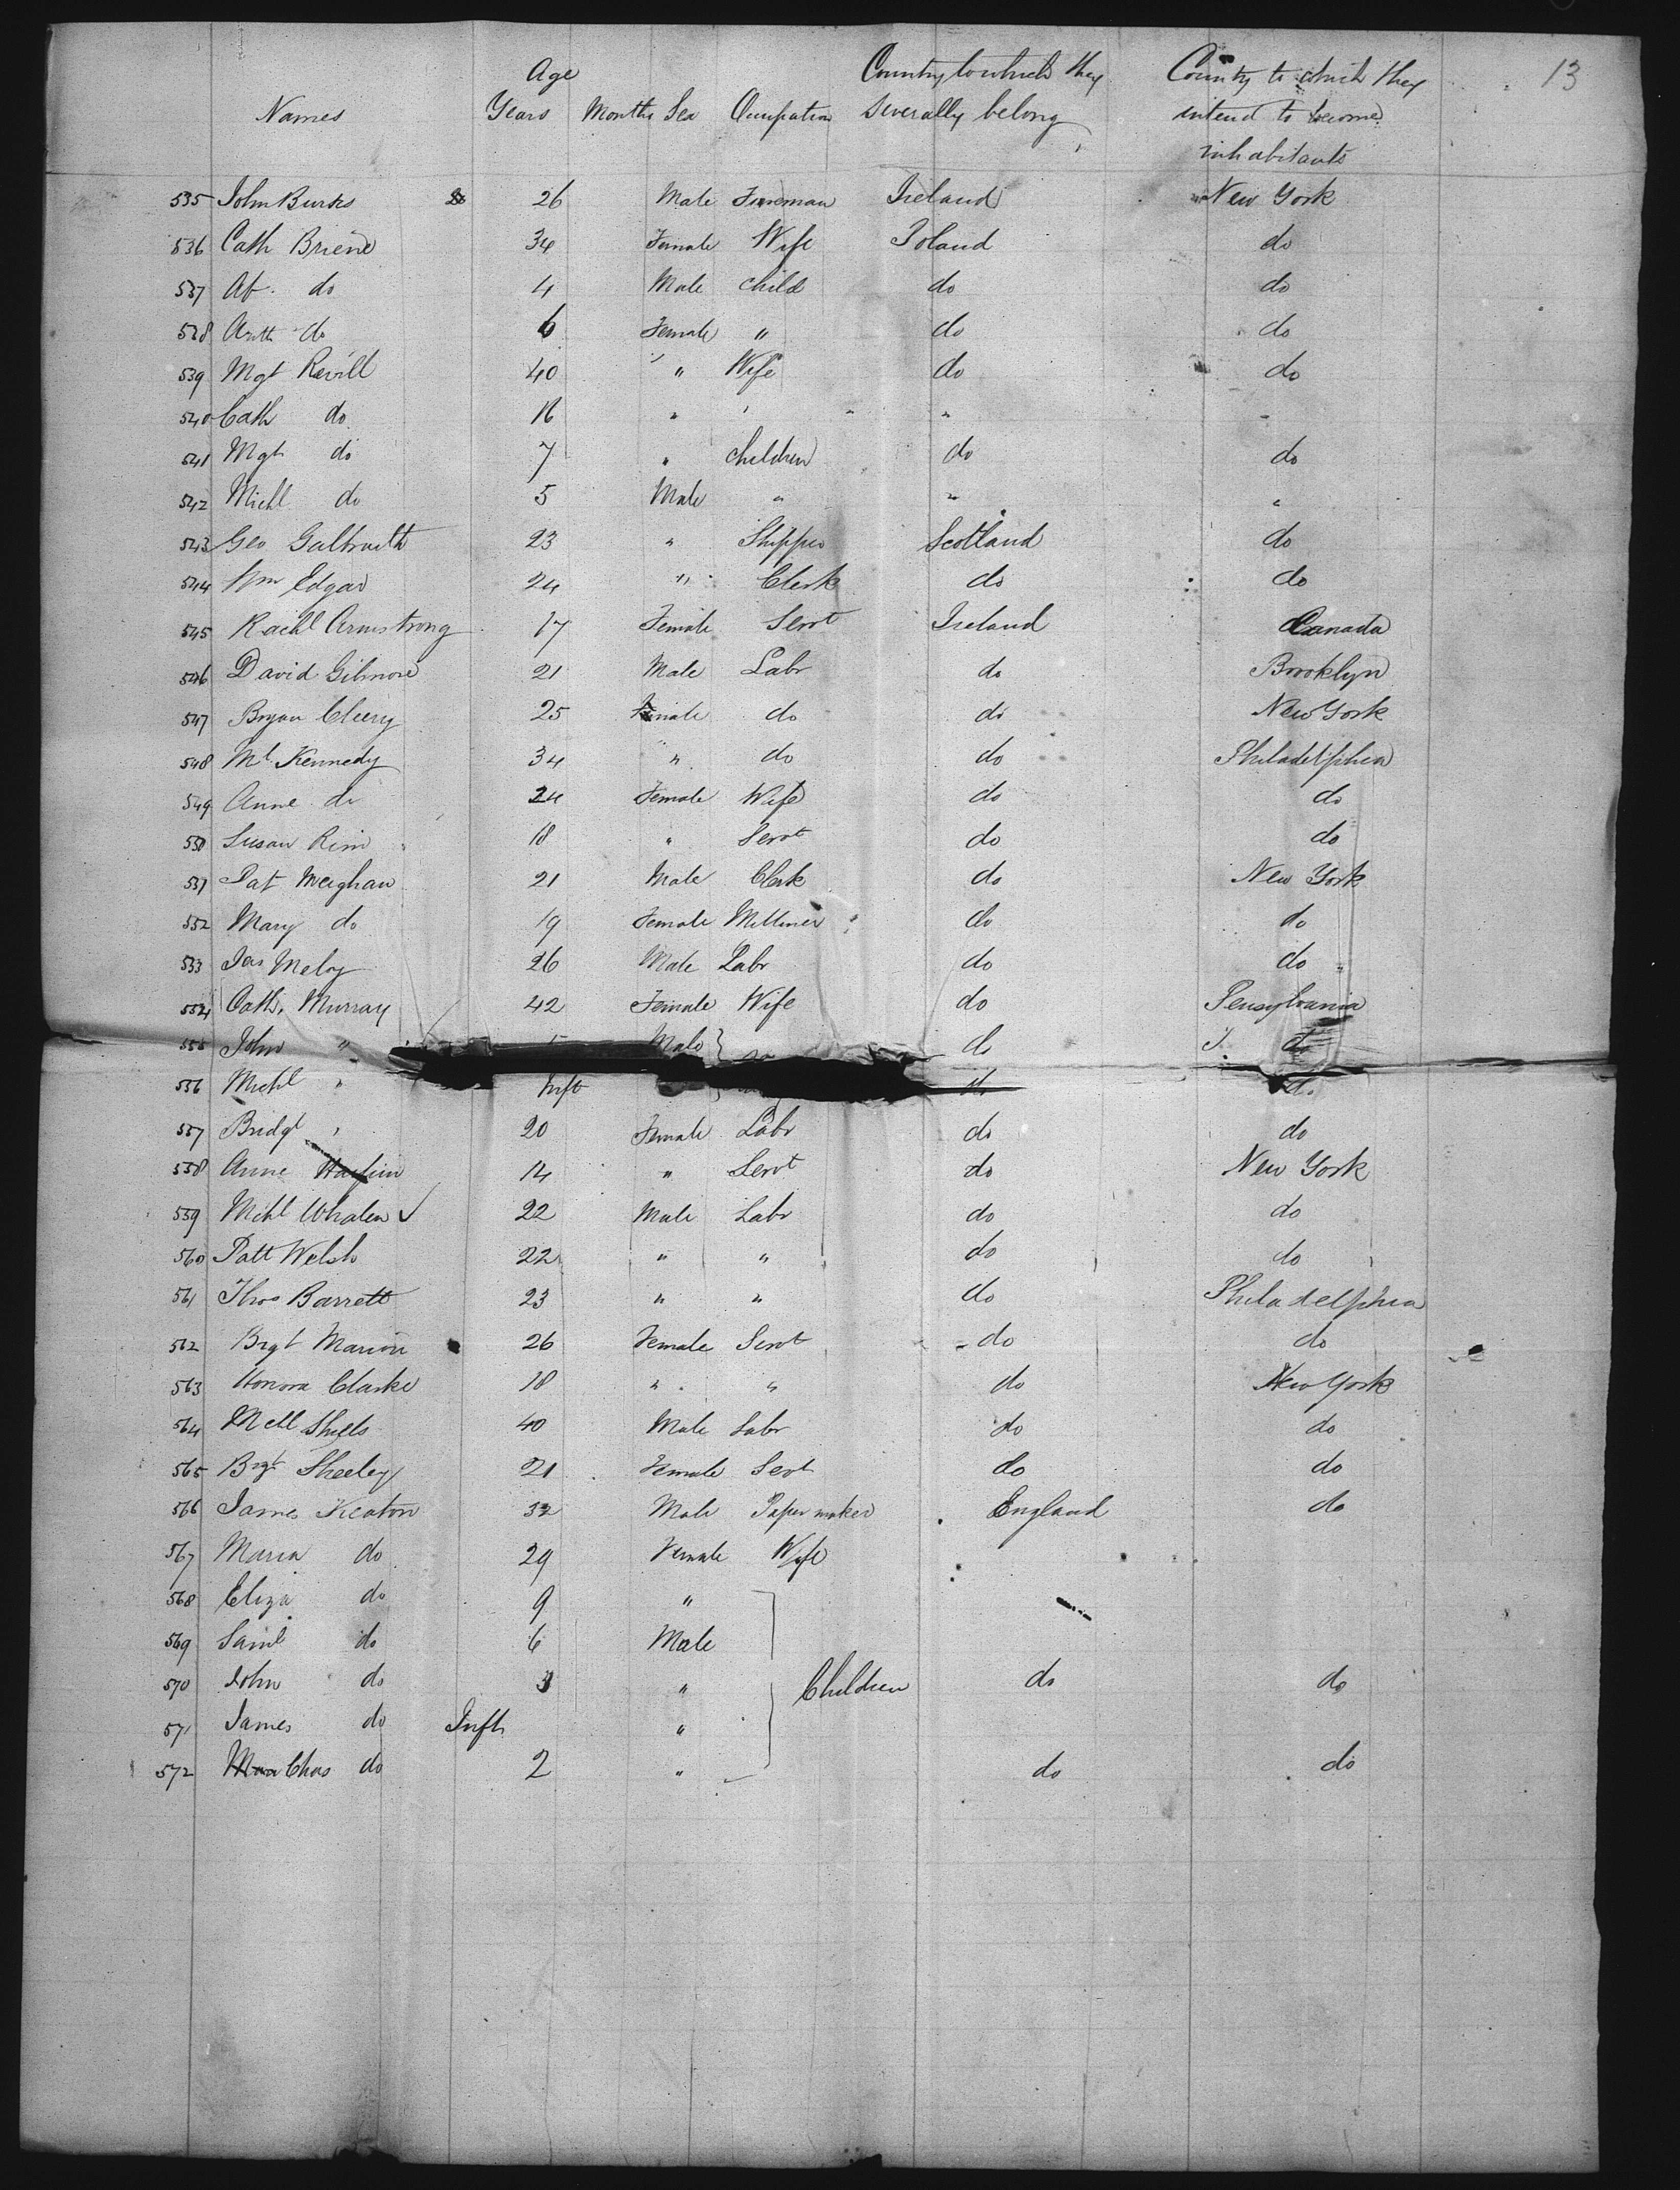 13
Names Age Years Months Sex Occupation Country to which they severally belong Country to which they intend to become inhabitants
535 John Burks 26 Male Ireland New York
536 Cath Briene 34 Female Wife Poland do
537 do 4 Male child do do
538 do 6 Female " do do
539 Mgt Revill 40 " Wife do do
540 Cath do 16 " ' " "
541 Mgt do 7 " children do do
542 Michl do 5 Male " " "
543 Geo Galbraith 23 " Scotland do
544 Wm Edgar 24 " Clerk do do
545 Rachl Armstrong 17 Female Servt Ireland Canada
546 David Gilmore 21 Male Labr do Brooklyn
547 Bryan Cleery 25 male do do New York
548 Ml Kennedy 34 " do do Philadelphia
549 Anne do 24 Female Wife do do
550 Susan Rim 18 " Servt do do
551 Pat Meighan 21 Male Clerk do New York
552 Mary do 19 Female Milliner do do
553 Jas Meloy 26 Male Labr do do
554 Cath. Murray 42 Female Wife do Pensylvania
555 John " Male } do do
556 Michl " Inft do do
557 Bridgt " 20 Female Labr do do
558 Anne 14 " Servt do New York
559 Mihl Whalen ✓ 22 Male Labr do do
560 Patt Welsh 22 " " do do
561 Thos Barrett 23 " " do Philadelphia
562 Brgt Marion 26 Female Servt do do
563 Honora Clarke 18 " " do New York
564 Mell Shells 40 Male Labr do do
565 Brgt Sheeley 21 Female Servt do do
566 James Keaton 32 Male Paper maker England do
567 Maria do 29 Female Wife
568 Eliza do 9 "
569 Saml do 6 Male
570 John do 3 " Children do do
571 James do Inft "
572 Chas do 2 " do do